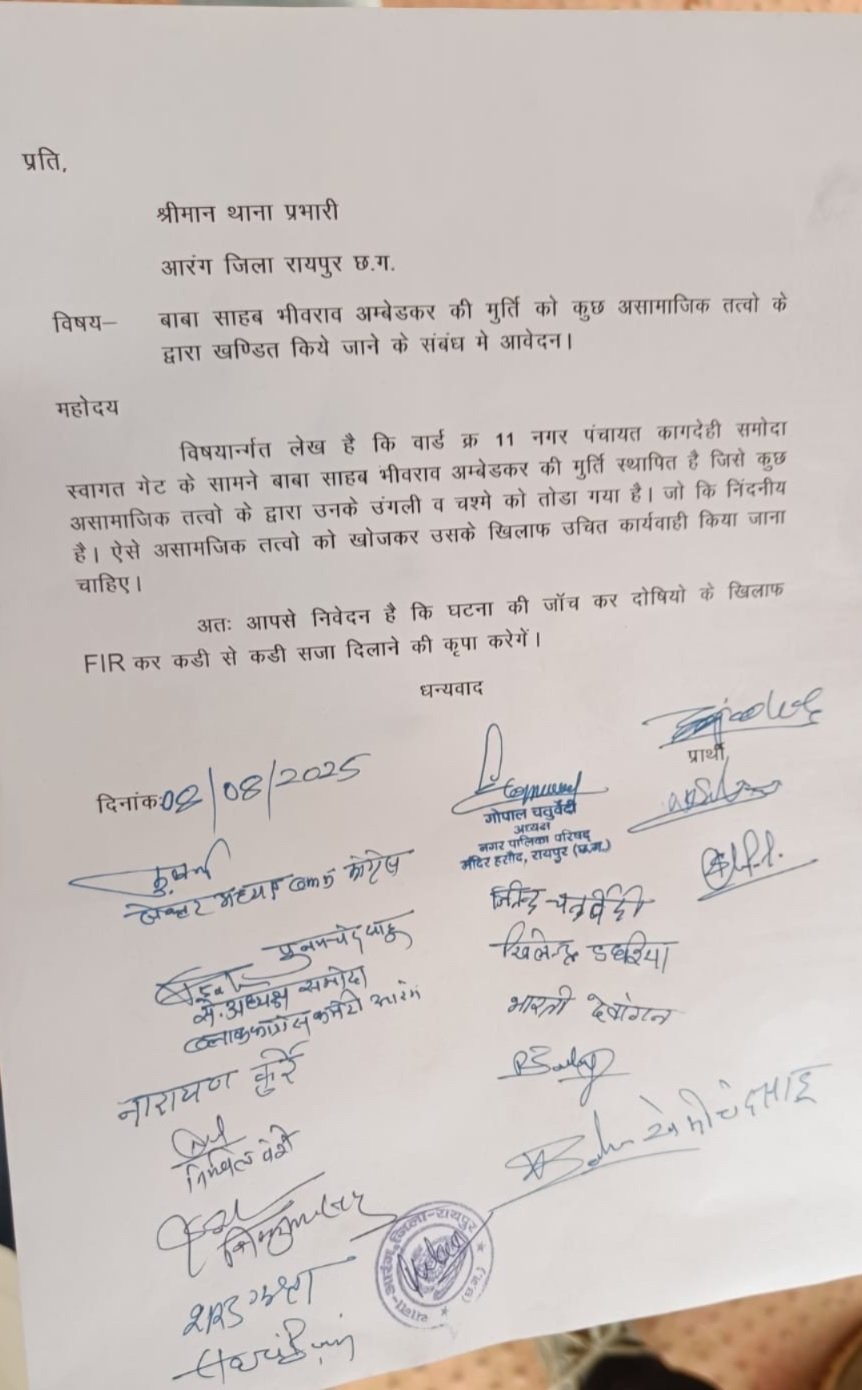 प्रति,
श्रीमान थाना प्रभारी
आरंग जिला रायपुर छ.ग.
विषय– बाबा साहब भीवराव अम्बेडकर की मुर्ति को कुछ असामाजिक तत्वो के
द्वारा खण्डित किये जाने के संबंध मे आवेदन।
महोदय
विषयार्न्गत लेख है कि वार्ड क्र 11 नगर पंचायत कागदेही समोदा
स्वागत गेट के सामने बाबा साहब भीवराव अम्बेडकर की मुर्ति स्थापित है जिसे कुछ
असामाजिक तत्वो के द्वारा उनके उंगली व चश्मे को तोडा गया है। जो कि निंदनीय
है। ऐसे असामजिक तत्वो को खोजकर उसके खिलाफ उचित कार्यवाही किया जाना
चाहिए।
अतः आपसे निवेदन है कि घटना की जॉच कर दोषियो के खिलाफ
FIR कर कडी से कडी सजा दिलाने की कृपा करेगें।
धन्यवाद
प्रार्थी,
दिनांक 08/08/2025
गोपाल चतुर्वेदी
अध्यक्ष
नगर पालिका परिषद्
मंदिर हसौद, रायपुर (छ.ग.)
जितेन्द्र चतुर्वेदी
खिलेन्द्र डहरिया
से. अध्यक्ष समोदा
भारती देवांगन
नारायण कुर्रे
थाना-आरंग, जिला-रायपुर (छ.ग.)